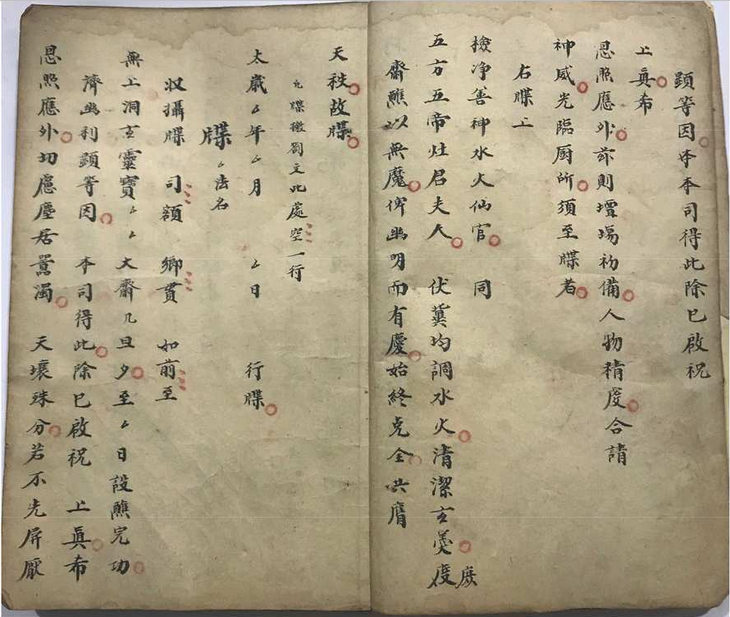 顕等因本司得此除已啟祝
上眞希
恩照應外前則壇場初備人物稍度合請
神威光臨厨所須至牒者
右牒上
撿净善神水火仙官 同
五方五帝灶君夫人 伏冀均調水火清潔玄羹庶度
齋醮以無魔俾幽明而有慶始終克全共膺
天秩故牒
凡牒檄劄文此處空一行
太歲厶年厶月 厶日 行牒
牒厶法名
收攝牒 司額 鄉貫 如前至
無上洞玄靈寶厶厶大齋几旦夕至厶日設醮完功
濟幽利顕等因 本司得此除已啟祝 上眞希
恩照應外切慮塵居嚣濁 天壤殊分若不先屏厭